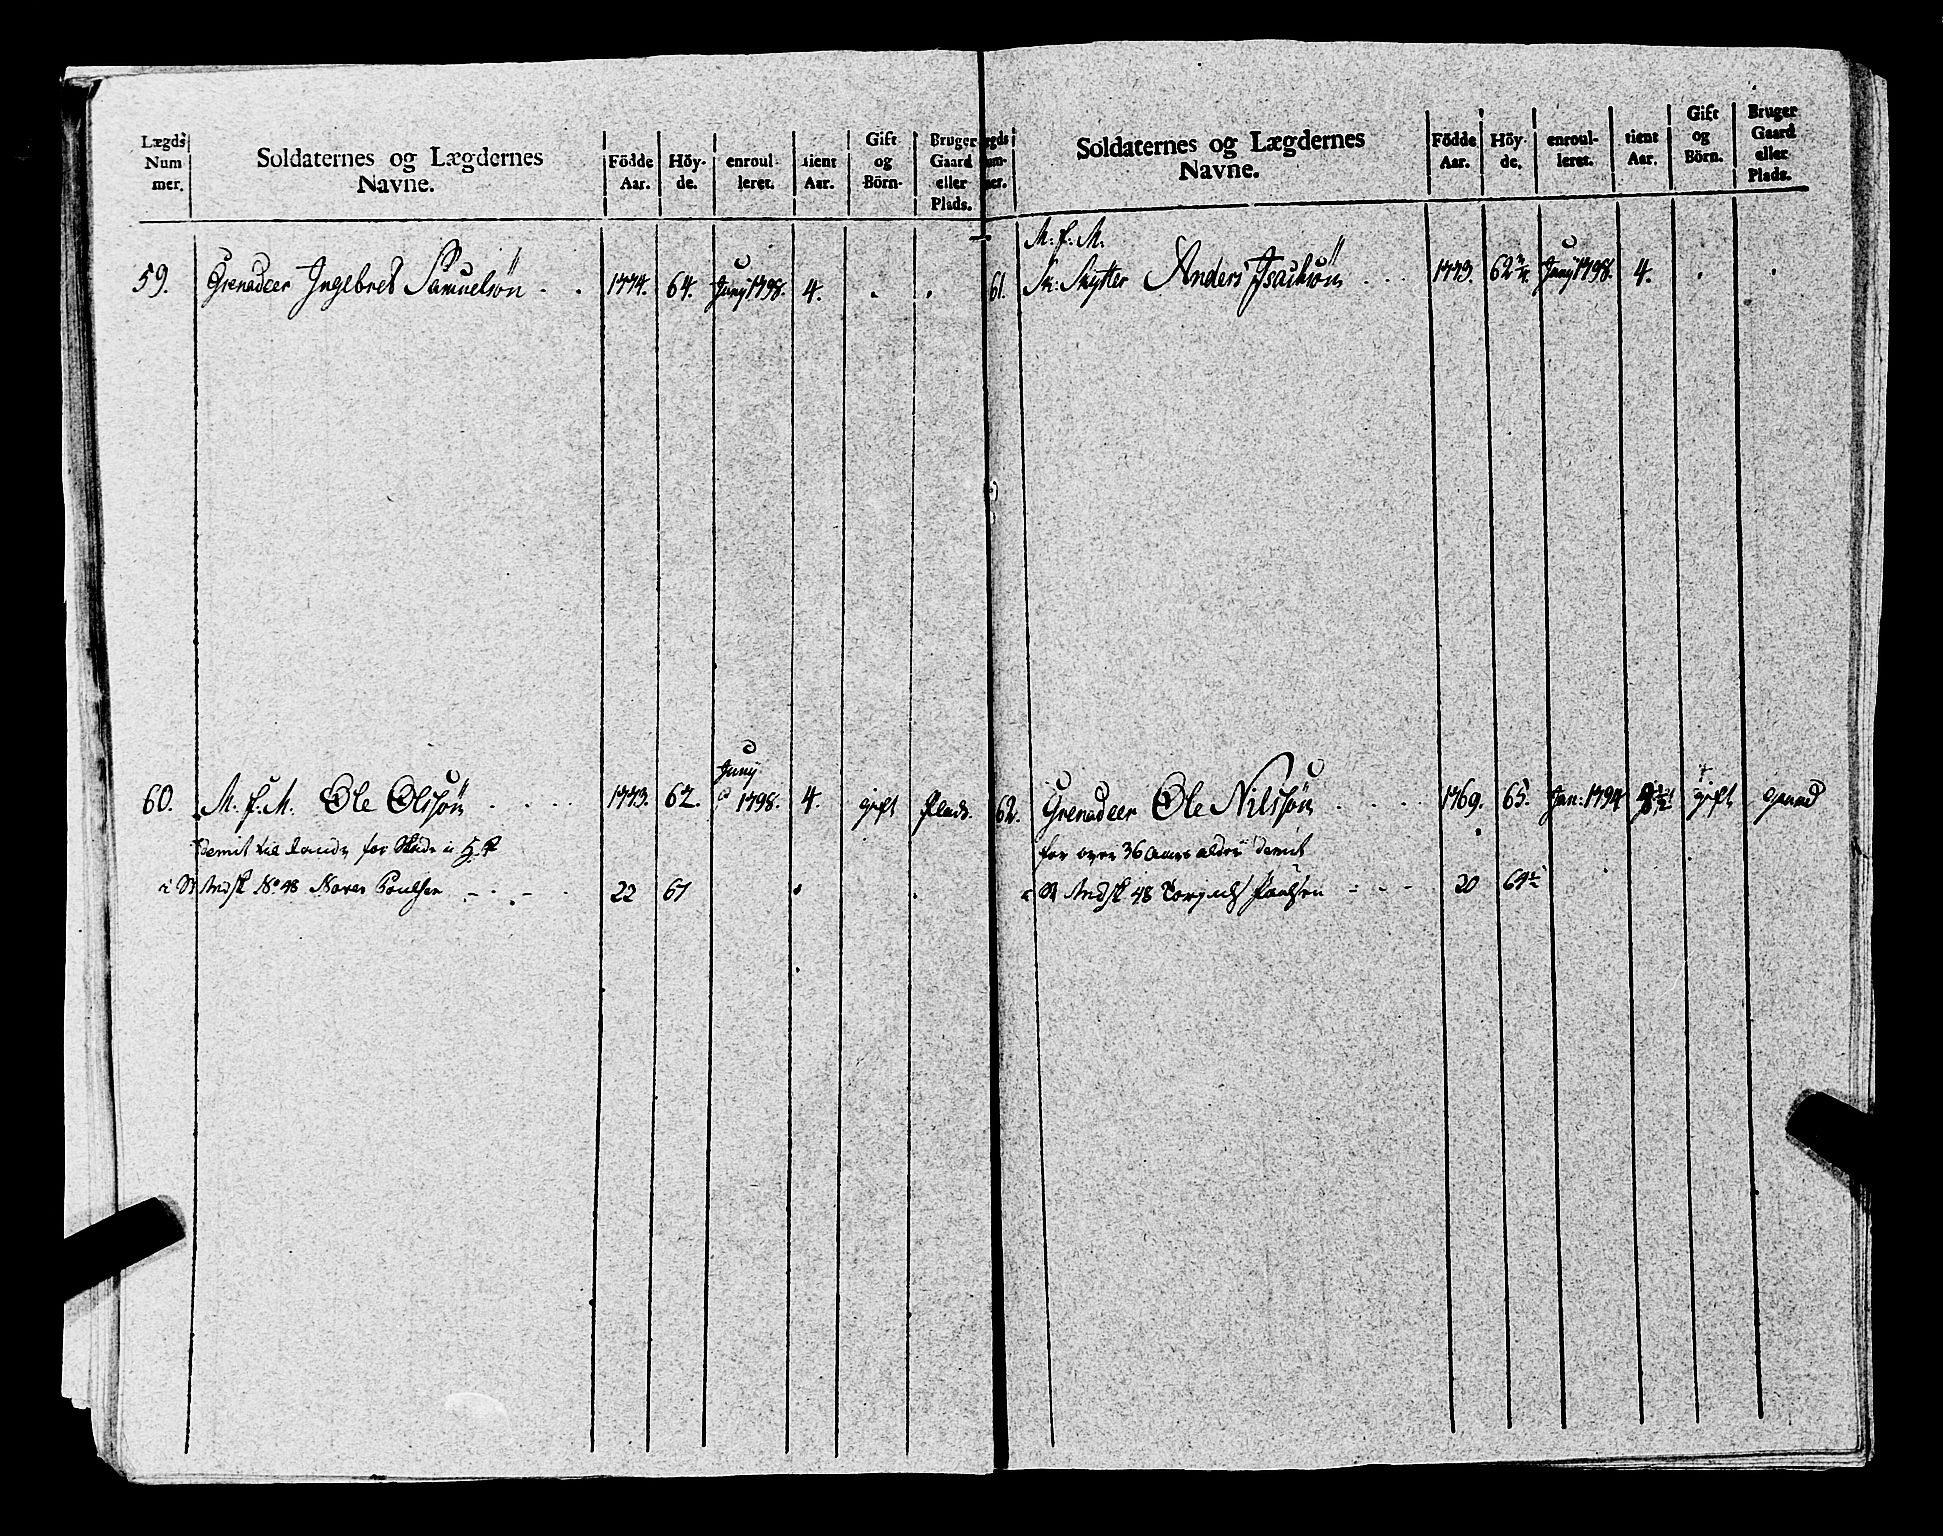 Lægds Num mer.
Soldaternes og Lægdernes Navne.
Födde Aar.
Höy- de.
enroul- leret.
tient Aar.
Gift og Börn.
Bruger Gaard eller Plads.
59. Grenadeer Ingebret Samuelsön . . 1774. 64. Juny 1798. 4. . .
60. M. f. M. Ole Olssön . . . . 1773. 62. Juny 1798. 4. gift Plads.
demit
i St Mdsk No 48 Poulsen - - - 22 67
Soldaternes og Lægdernes Navne.
Födde Aar.
Höy- de.
enroul- leret.
tient Aar.
Gift og Börn.
Bruger Gaard eller Plads.
M. f. M.
61. Sk: Skytter Anders Isachsön . . . 1773. 62 Juny 1798. 4. . .
62. Grenadeer Ole Nilssön . . . . 1769. 65. Jan: 1794 gift gaard
for over 36 aars alder demit
48 Paulsen - - - 20 64½